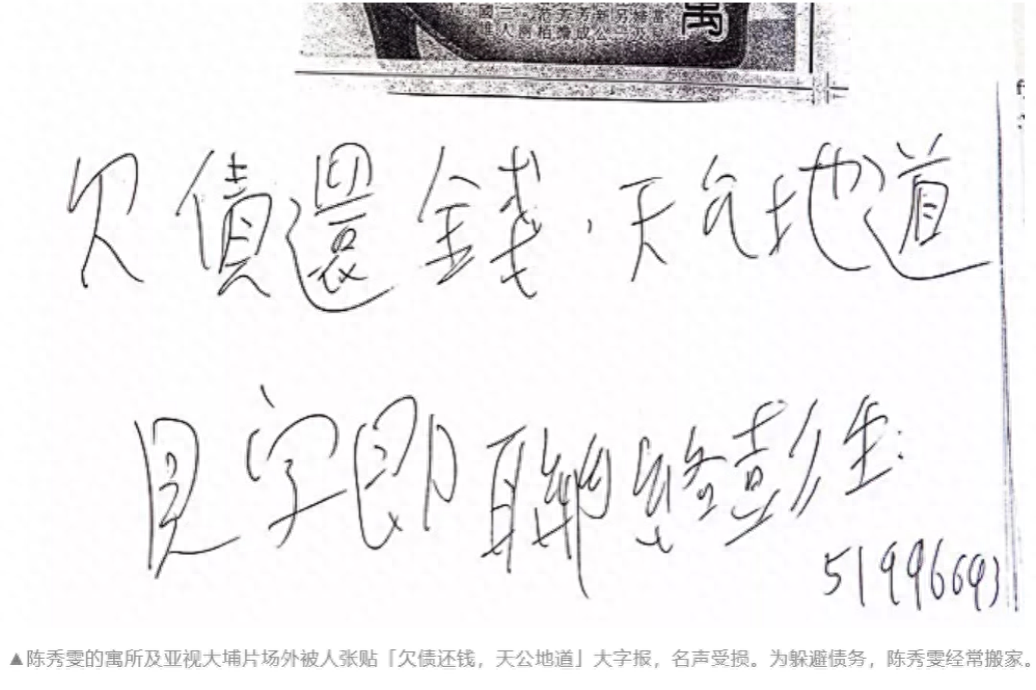 萬
欠債還錢，天公地道
見字即聯絡彭生：
51996693
▲陈秀雯的寓所及亚视大埔片场外被人张贴「欠债还钱，天公地道」大字报，名声受损。为躲避债务，陈秀雯经常搬家。